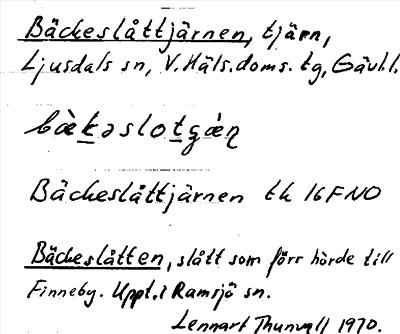 Bäckeslåttjärnen, tjärn,
Ljusdals sn, V. Häls. doms. tg, Gävl.l.
Bäckeslåttjärnen tk 16F NO
Bäckeslåtten, slått som förr hörde till
Finneby. Uppt. i Ramsjö sn.
Lennart Thunvall 1970.